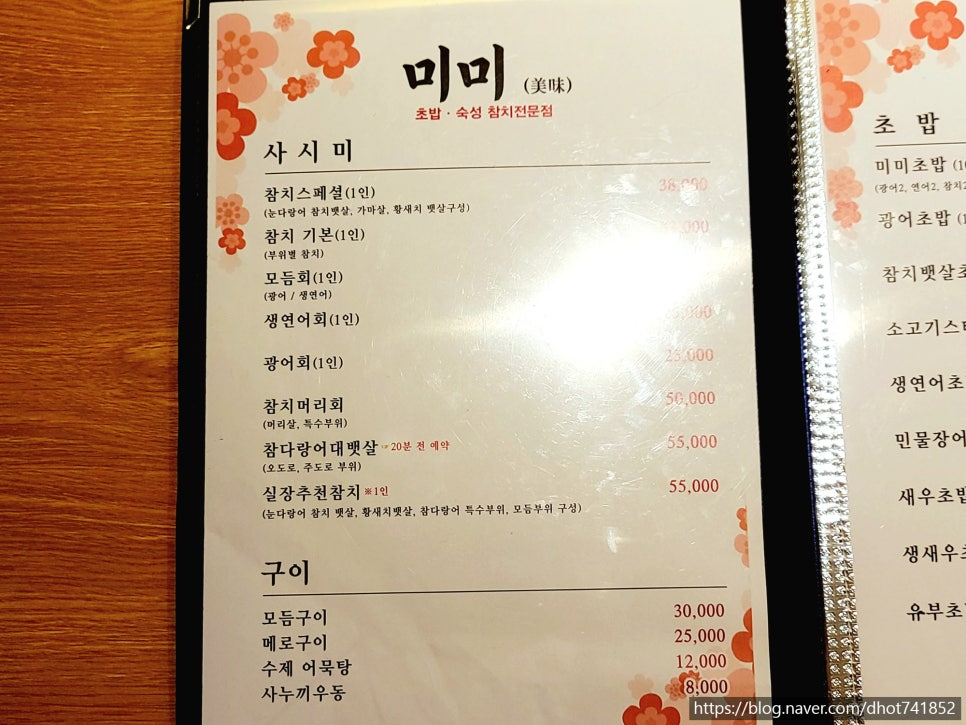 미미 (美味)
초밥 · 숙성 참치전문점
사 시 미
참치스페셜(1인) 38,000
(눈다랑어 참치뱃살, 가마살, 황새치 뱃살구성)
참치 기본(1인)
(부위별 참치)
모듬회(1인)
(광어 / 생연어)
생연어회(1인)
광어회(1인) 25,000
참치머리회 50,000
(머리살, 특수부위)
참다랑어대뱃살 ☞20분 전 예약 55,000
(오도로, 주도로 부위)
실장추천참치 ※1인 55,000
(눈다랑어 참치 뱃살, 황새치뱃살, 참다랑어 특수부위, 모듬부위 구성)
구이
모듬구이 30,000
메로구이 25,000
수제 어묵탕 12,000
사누끼우동 8,000
초 밥
미미초밥
(광어2, 연어2, 참치2
광어초밥
참치뱃살초
소고기스테
생연어초
민물장어
새우초밥
생새우초
유부초
https://blog.naver.com/dhot741852